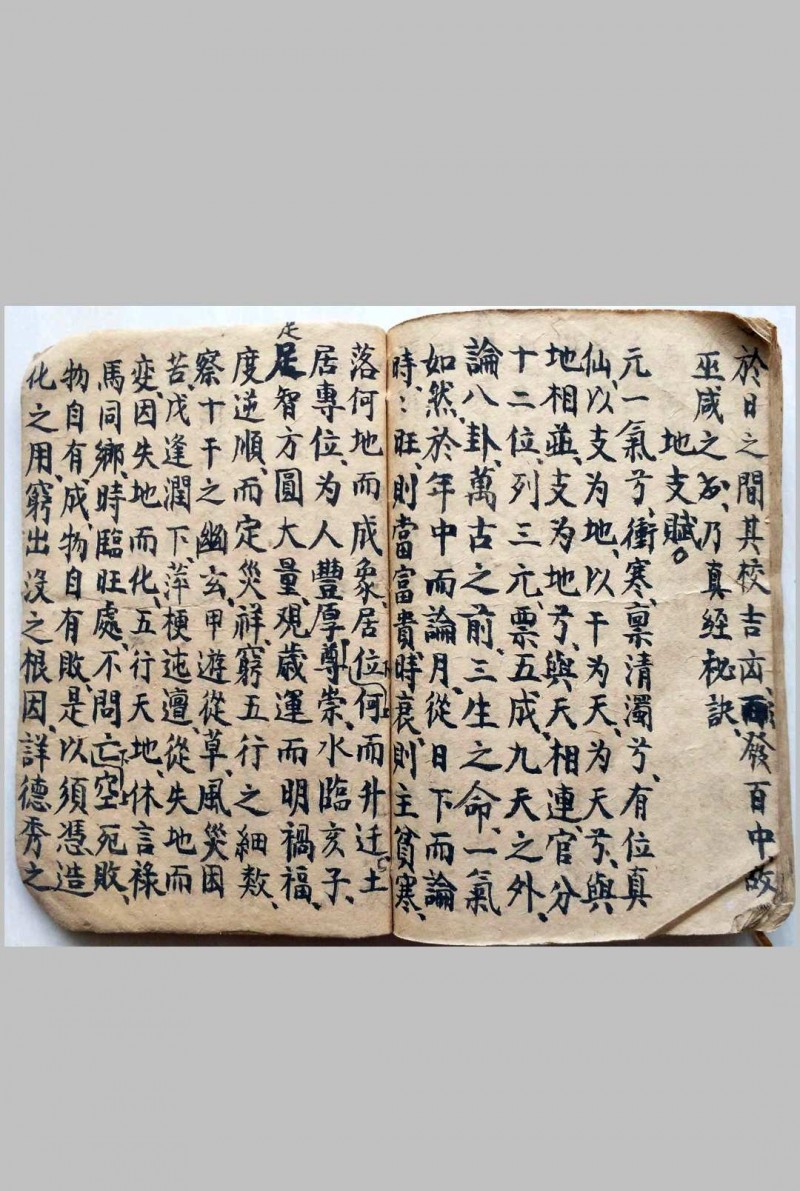 於日之間其校吉凶、發百中故
巫咸之乃真經秘訣、
地支賦。
元一氣兮、衝寒、稟清濁兮、有位真
仙、以支为地、以干为天、为天兮、與
地相並、支为地兮、與天相連、官分
十二位、列三元、票五成、九天之外、
論八卦、萬古之前、三生之命、一氣
如然、於年中而論月、從日下而論
時：旺、則當富貴、時衰、則主貧寒、
落何地而成象、居位何而升迁、土
居專位、为人豐厚尊崇、水臨亥子、
足智方圓大量、观歳運而明禍福、
度逆順、而定災祥、窮五行之細数、
察十干之幽玄、甲遊從草、風災因
苦、戊逢潤下、萍梗迍邅、從失地而
变、因失地而化、五行天地、休言祿
馬同鄉、時臨旺處、不問亡空死敗、
物自有成、物自有敗、是以須憑造
化之用、窮出沒之根因、詳德秀之